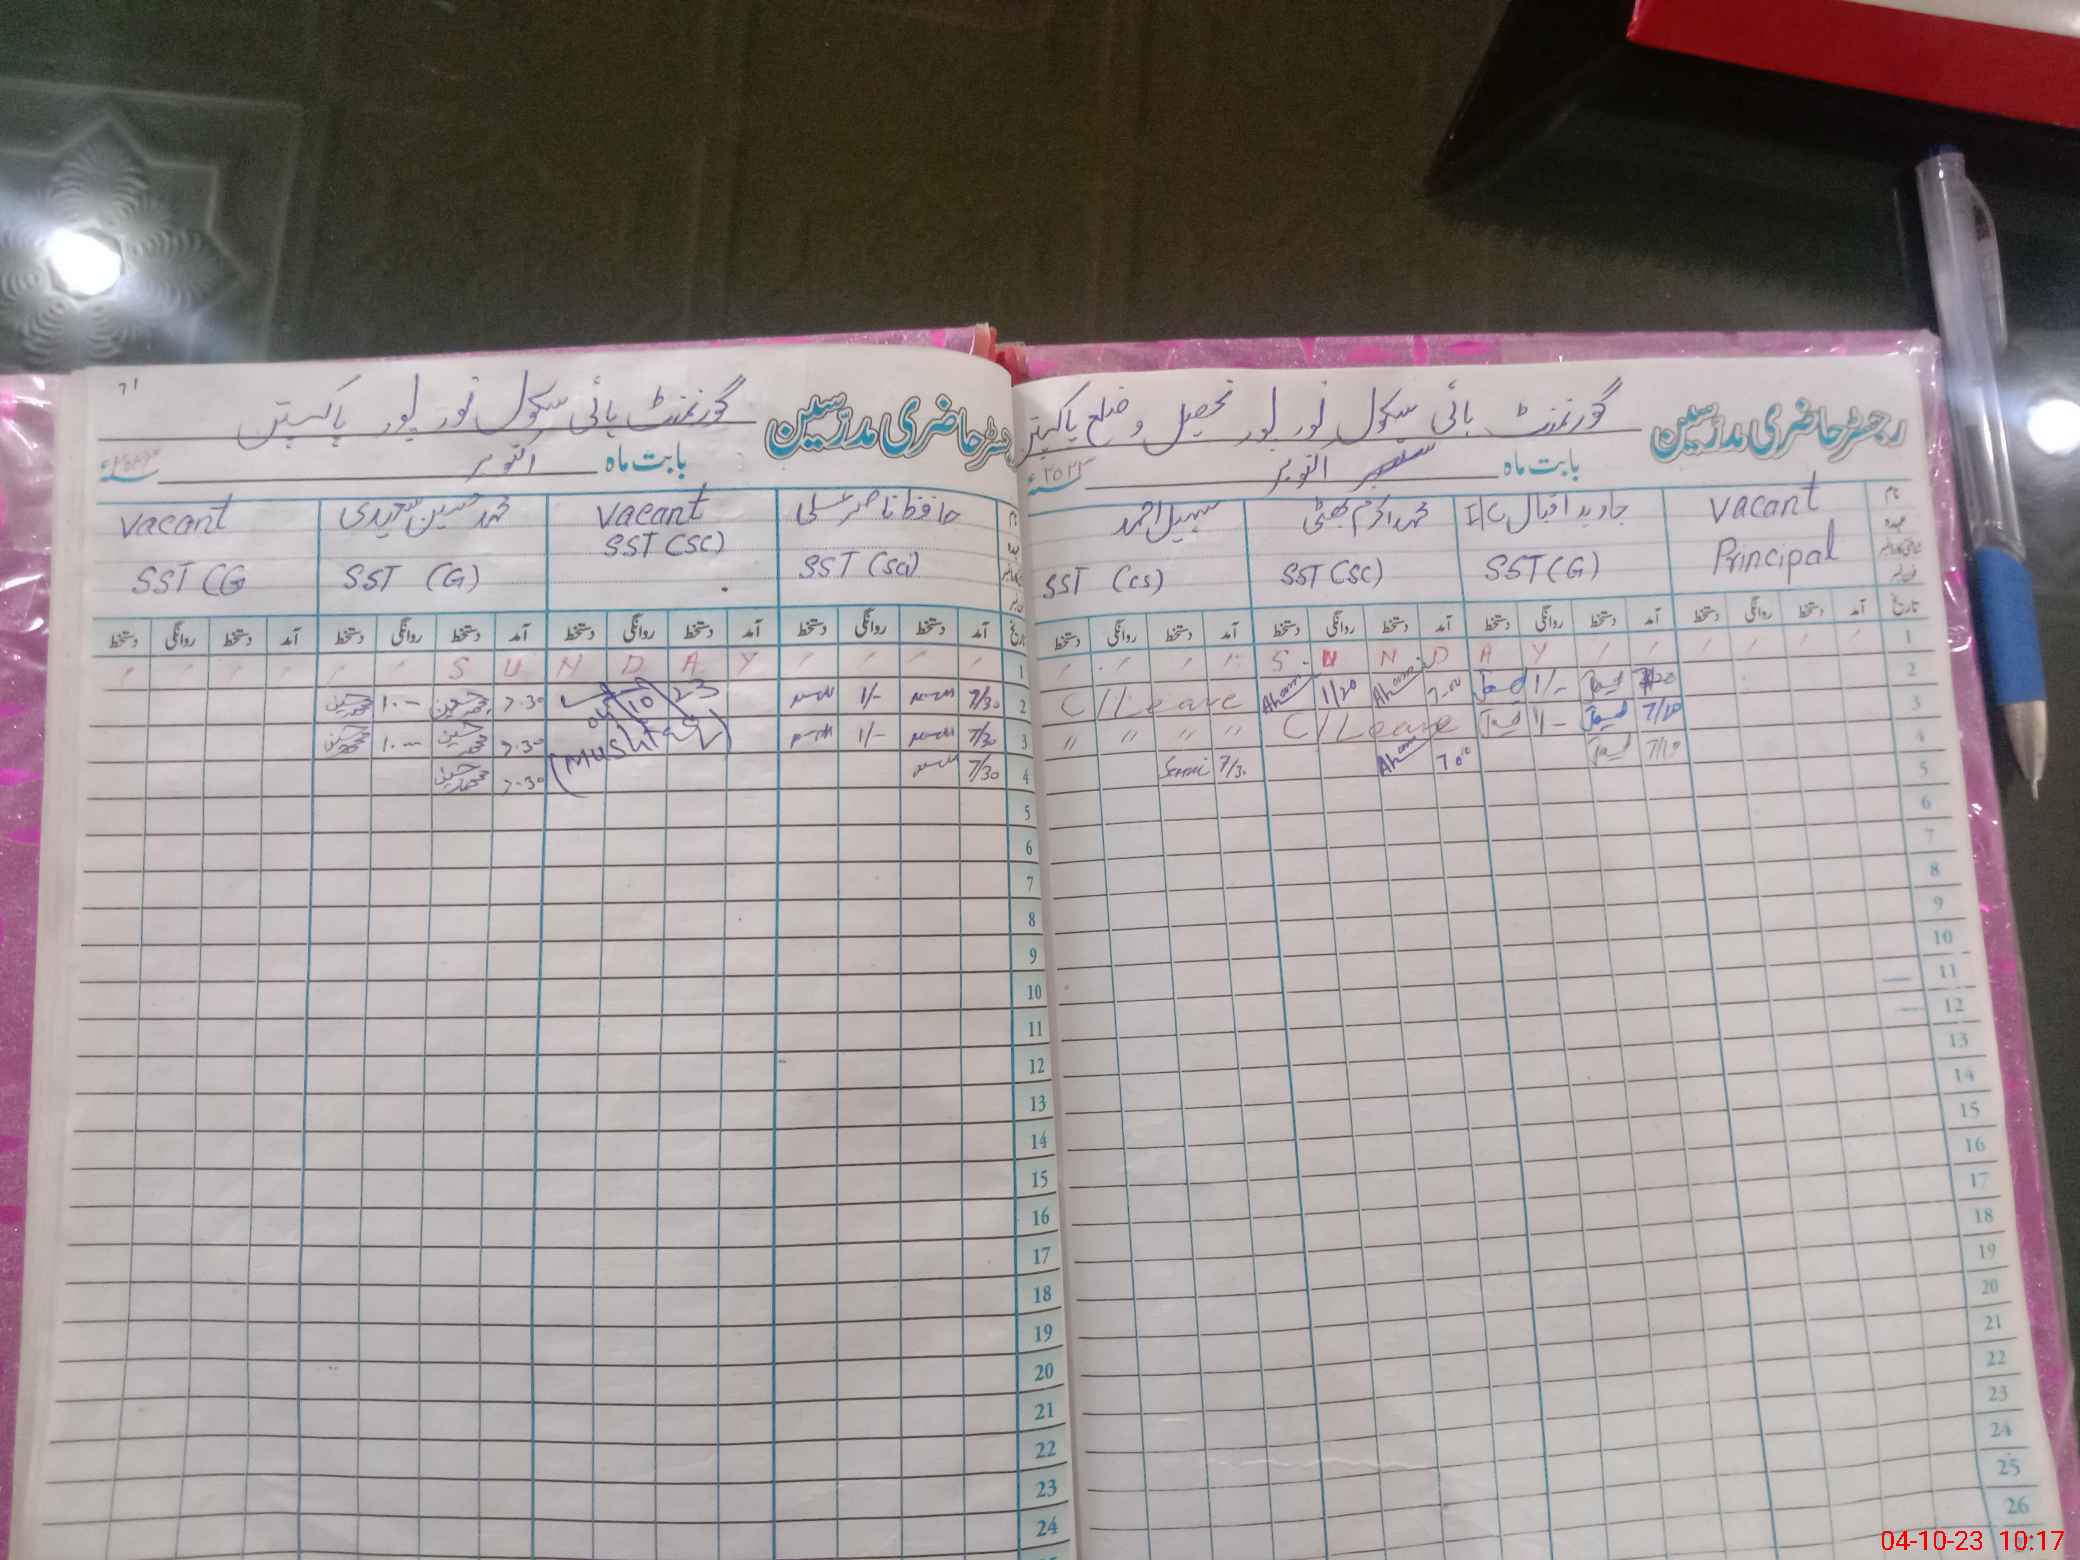 رجسٹر حاضری مدرّسین
گورنمنٹ ہائی سکول نور پور تحصیل و ضلع پاکپتن
بابت ماہ ستمبر اکتوبر
نام
عہدہ
Vacant
Principal
جاوید اقبال I/C
SST (G)
محمد اکرم بھٹی
SST (SC)
سہیل احمد
SST (CS)
تاریخ آمد دستخط روانگی دستخط آمد دستخط روانگی دستخط آمد دستخط روانگی دستخط آمد دستخط روانگی دستخط
1 S U N D A Y
2 7/20 1/- 7-00 1/20 C/Leave
3 7/20 1/- C/Leave " " " "
4 7/10 7/3.
5
6
7
8
9
10
11
12
13
14
15
16
17
18
19
20
21
22
23
24
25
26
71
رجسٹر حاضری مدرّسین
گورنمنٹ ہائی سکول نور پور پاکپتن
بابت ماہ اکتوبر
حافظ ناصر علی
SST (Sci)
Vacant
SST (SC)
محمد حسین سعیدی
SST (G)
Vacant
SST (G
تاریخ آمد دستخط روانگی دستخط آمد دستخط روانگی دستخط آمد دستخط روانگی دستخط آمد دستخط روانگی دستخط
1 S U N D A Y
2 7/30 1/- 04/10/23 7-30 1.—
3 7/30 1/- (Mushtaq) 7-30 1.—
4 7/30 7-30
5
6
7
8
9
10
11
12
13
14
15
16
17
18
19
20
21
22
23
24
04-10-23 10:17